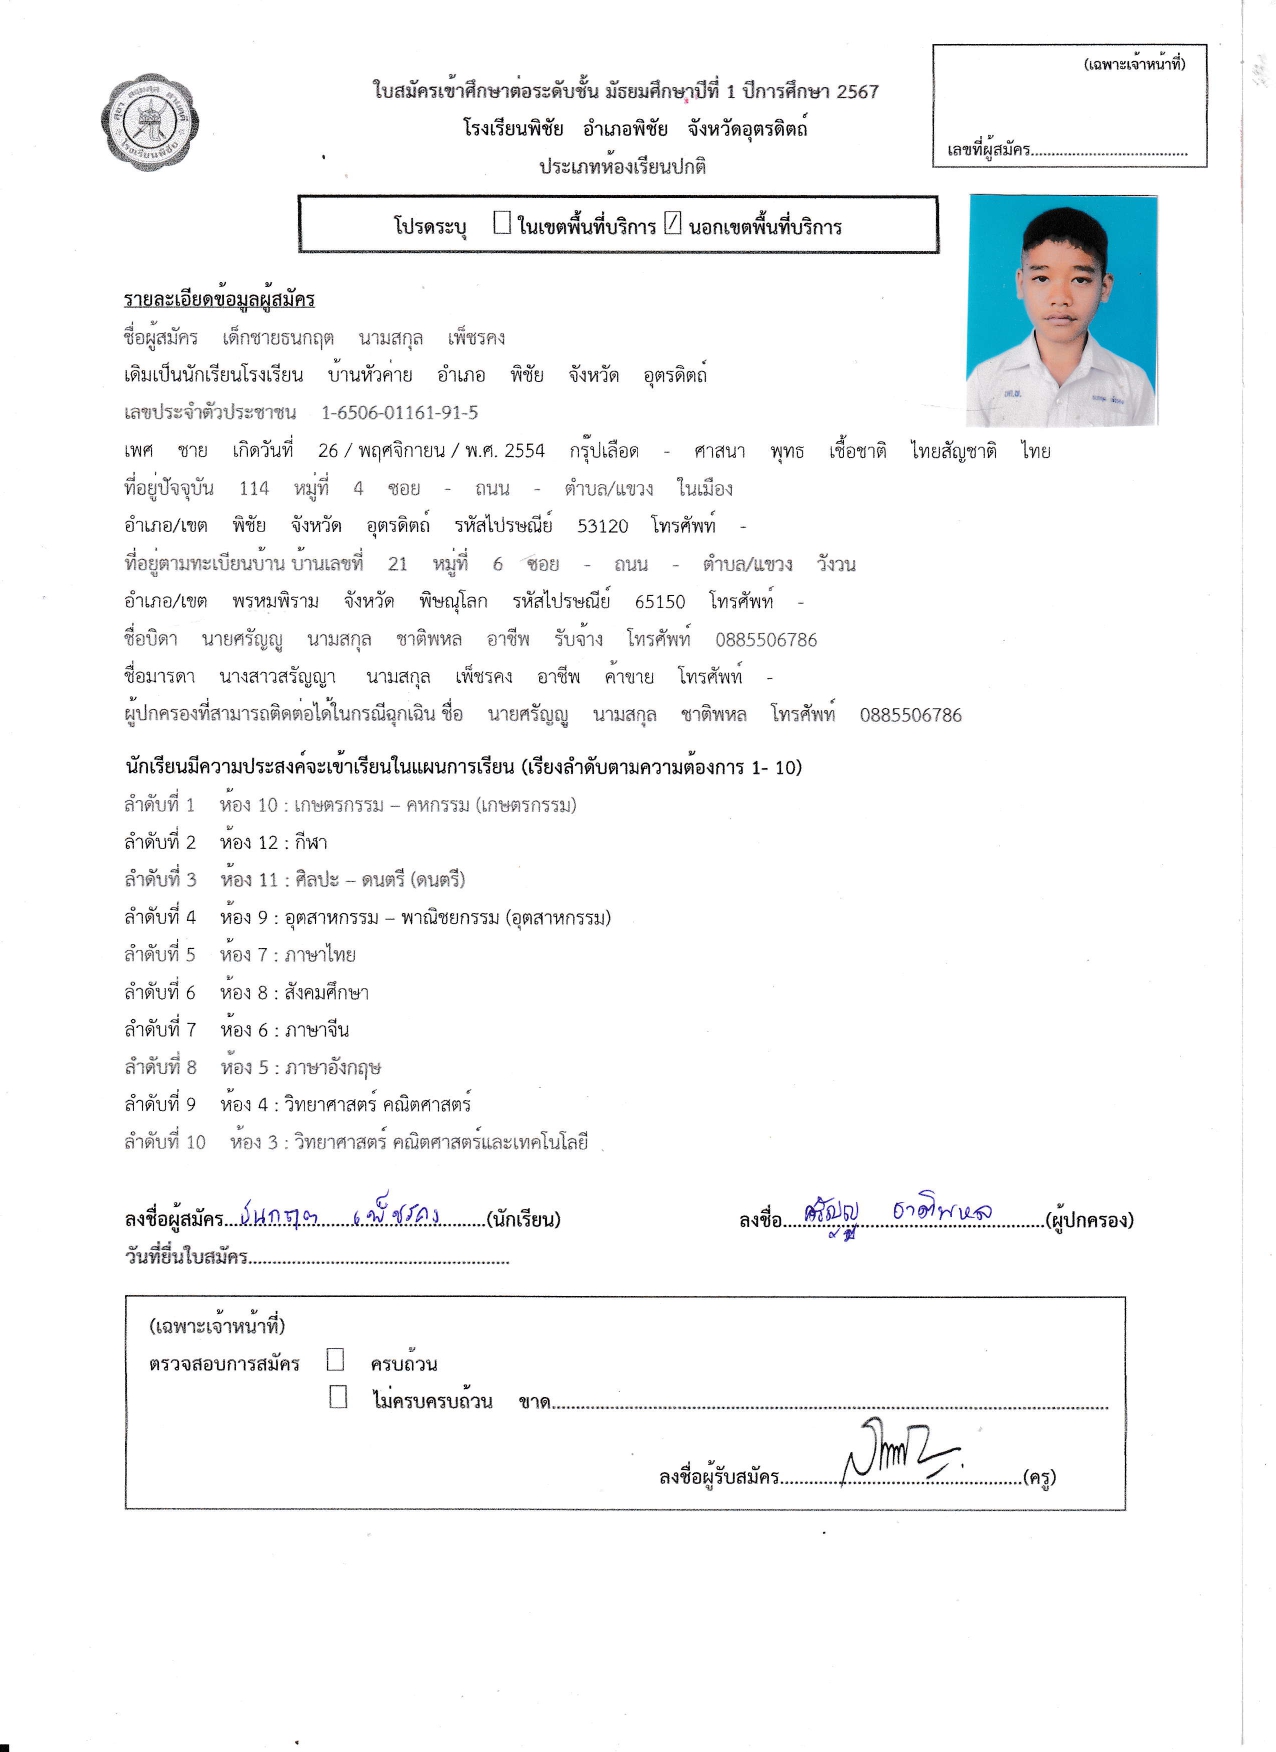 (เฉพาะเจ้าหน้าที่)
ใบสมัครเข้าศึกษาต่อระดับชั้น มัธยมศึกษาปีที่ 1 ปีการศึกษา 2567
โรงเรียนพิชัย อำเภอพิชัย จังหวัดอุตรดิตถ์
เลขที่ผู้สมัคร......................................
ประเภทห้องเรียนปกติ
โปรดระบุ ☐ ในเขตพื้นที่บริการ ☑ นอกเขตพื้นที่บริการ
รายละเอียดข้อมูลผู้สมัคร
ชื่อผู้สมัคร เด็กชายธนกฤต นามสกุล เพ็ชรคง
เดิมเป็นนักเรียนโรงเรียน บ้านหัวค่าย อำเภอ พิชัย จังหวัด อุตรดิตถ์
เลขประจำตัวประชาชน 1-6506-01161-91-5
เพศ ชาย เกิดวันที่ 26 / พฤศจิกายน / พ.ศ. 2554 กรุ๊ปเลือด - ศาสนา พุทธ เชื้อชาติ ไทยสัญชาติ ไทย
ที่อยู่ปัจจุบัน 114 หมู่ที่ 4 ซอย - ถนน - ตำบล/แขวง ในเมือง
อำเภอ/เขต พิชัย จังหวัด อุตรดิตถ์ รหัสไปรษณีย์ 53120 โทรศัพท์ -
ที่อยู่ตามทะเบียนบ้าน บ้านเลขที่ 21 หมู่ที่ 6 ซอย - ถนน - ตำบล/แขวง วังวน
อำเภอ/เขต พรหมพิราม จังหวัด พิษณุโลก รหัสไปรษณีย์ 65150 โทรศัพท์ -
ชื่อบิดา นายศรัญญู นามสกุล ชาติพหล อาชีพ รับจ้าง โทรศัพท์ 0885506786
ชื่อมารดา นางสาวสรัญญา นามสกุล เพ็ชรคง อาชีพ ค้าขาย โทรศัพท์ -
ผู้ปกครองที่สามารถติดต่อได้ในกรณีฉุกเฉิน ชื่อ นายศรัญญู นามสกุล ชาติพหล โทรศัพท์ 0885506786
นักเรียนมีความประสงค์จะเข้าเรียนในแผนการเรียน (เรียงลำดับตามความต้องการ 1- 10)
ลำดับที่ 1 ห้อง 10 : เกษตรกรรม – คหกรรม (เกษตรกรรม)
ลำดับที่ 2 ห้อง 12 : กีฬา
ลำดับที่ 3 ห้อง 11 : ศิลปะ – ดนตรี (ดนตรี)
ลำดับที่ 4 ห้อง 9 : อุตสาหกรรม – พาณิชยกรรม (อุตสาหกรรม)
ลำดับที่ 5 ห้อง 7 : ภาษาไทย
ลำดับที่ 6 ห้อง 8 : สังคมศึกษา
ลำดับที่ 7 ห้อง 6 : ภาษาจีน
ลำดับที่ 8 ห้อง 5 : ภาษาอังกฤษ
ลำดับที่ 9 ห้อง 4 : วิทยาศาสตร์ คณิตศาสตร์
ลำดับที่ 10 ห้อง 3 : วิทยาศาสตร์ คณิตศาสตร์และเทคโนโลยี
ลงชื่อผู้สมัคร...ธนกฤต เพ็ชรคง...(นักเรียน) ลงชื่อ...ศรัญญู ชาติพหล...(ผู้ปกครอง)
วันที่ยื่นใบสมัคร......................................................
(เฉพาะเจ้าหน้าที่)
ตรวจสอบการสมัคร ☐ ครบถ้วน
☐ ไม่ครบครบถ้วน ขาด......................................................
ลงชื่อผู้รับสมัคร......................................................(ครู)